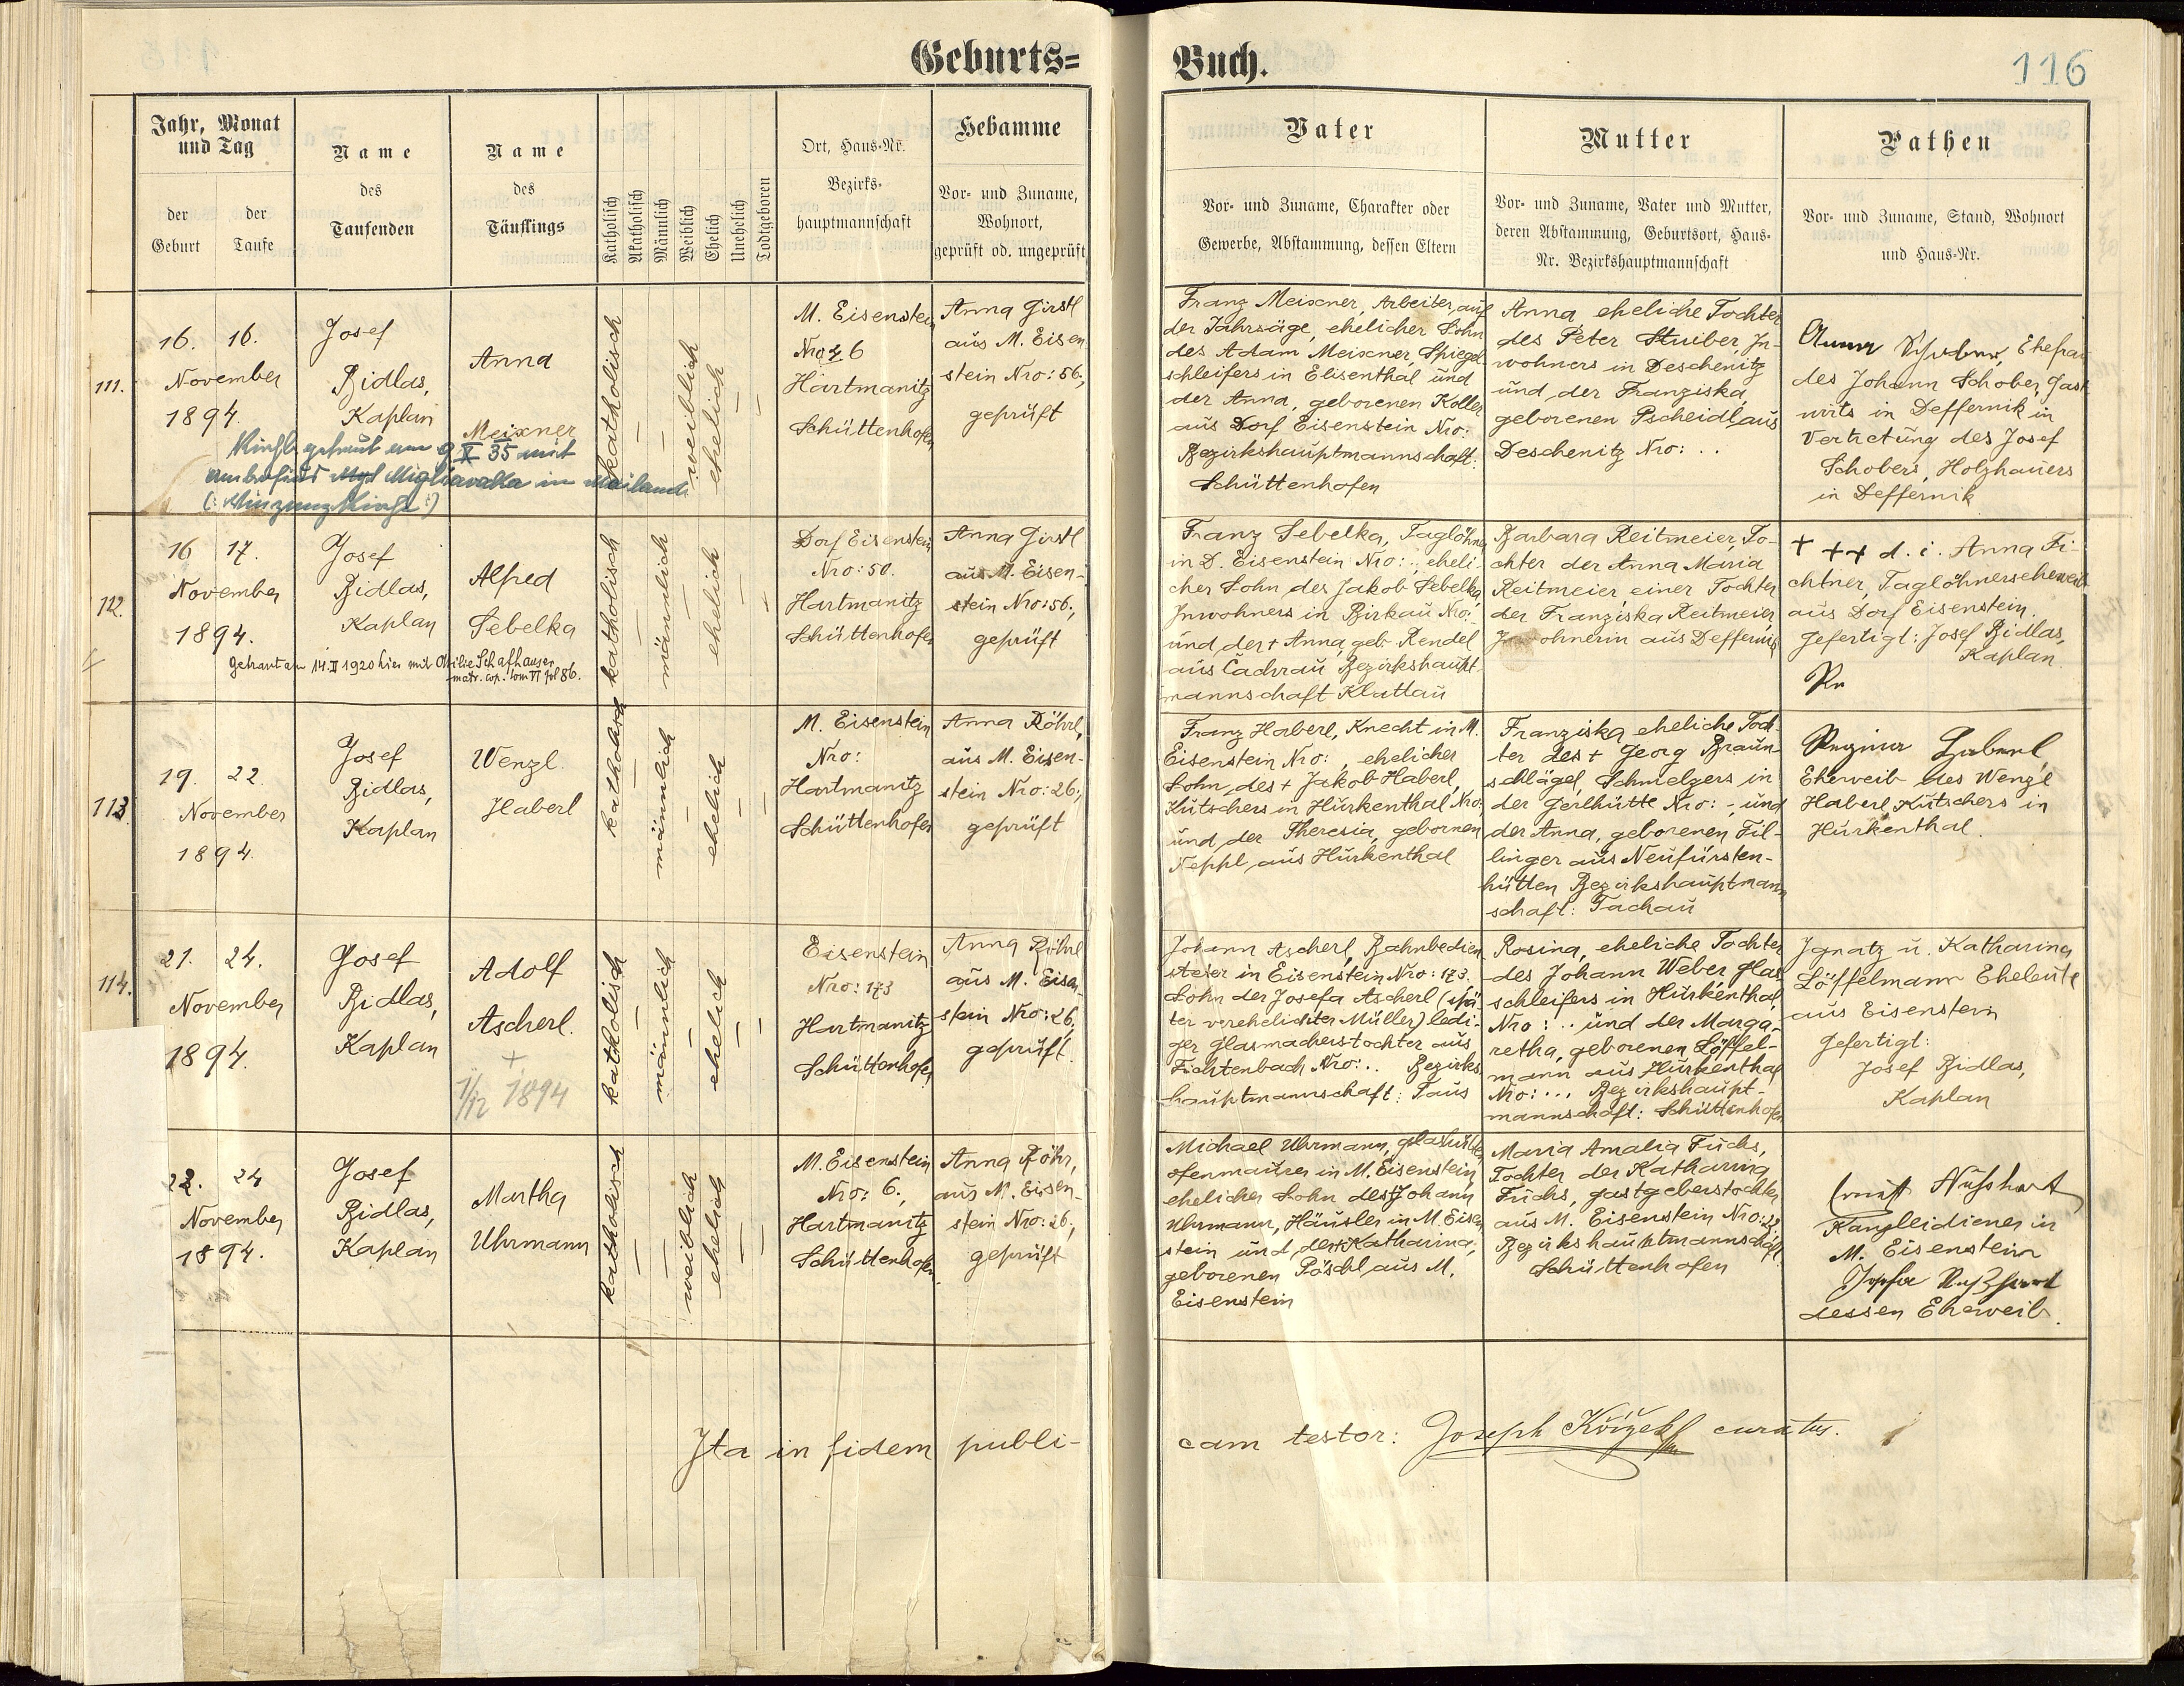 Geburts=
Buch.
116
Jahr, Monat
und Tag
der
Geburt
der
Taufe
Name
des
Taufenden
Name
des
Täuflings
Katholisch
Akatholisch
Männlich
Weiblich
Ehelich
Unehelich
Todtgeboren
Ort, Haus-Nr.
Bezirks-
hauptmannschaft
Hebamme
Vor- und Zuname,
Wohnort,
geprüft od. ungeprüft
Vater
Vor- und Zuname, Charakter oder
Gewerbe, Abstammung, dessen Eltern
Mutter
Vor- und Zuname, Vater und Mutter,
deren Abstammung, Geburtsort, Haus-
Nr. Bezirkshauptmannschaft
Pathen
Vor- und Zuname, Stand, Wohnort
und Haus-Nr.
111.
16. 16.
November
1894.
Josef
Bidlas,
Kaplan
Anna
Meixner
katholisch
weiblich
ehelich
M. Eisenstein
Nro 26
Hartmanitz
Schüttenhofen
Anna Girstl
aus M. Eisen-
stein Nro: 56.,
geprüft
Franz Meixner, Arbeiter auf
der Jahrsäge, ehelicher Sohn
des Adam Meixner, Spiegel-
schleifers in Elisenthal und
der Anna, geborenen Koller
aus Dorf Eisenstein Nro:
Bezirkshauptmannschaft:
Schüttenhofen
Anna eheliche Tochter
des Peter Stuiber, In-
wohners in Deschenitz
und der Franziska,
geborenen Pscheidl aus
Deschenitz Nro: . .
Anna Schober, Ehefrau
des Johann Schober, Gast-
wirts in Deffernik in
Vertretung des Josef
Schobers, Holzhauers
in Deffernik
Kirchl. getraut am 9 X 35 mit
Migliavakka in Mailand
112.
16 17.
November
1894.
Josef
Bidlas,
Kaplan
Alfred
Sebelka
katholisch
männlich
ehelich
Dorf Eisenstein
Nro: 50.
Hartmanitz
Schüttenhofen
Anna Girstl
aus M. Eisen-
stein Nro: 56.,
geprüft
Franz Sebelka, Taglöhner
in D. Eisenstein Nro: ., eheli-
cher Sohn des Jakob Sebelka,
Inwohners in Birkau Nro:
und der + Anna geb. Rendel
aus Čachrau Bezirkshaupt-
mannschaft Klattau
Barbara Reitmeier, To-
chter der Anna Maria
Reitmeier einer Tochter
der Franziska Reitmeier,
Inwohnerin aus Deffernik
+ ++ d. i. Anna Fi-
chtner, Taglöhnerseheweib
aus Dorf Eisenstein.
Gefertigt: Josef Bidlas,
Kaplan.
Getraut am 14. II 1920 hier mit Otilie Schafhauser
matr. cop. tom VI fol 86.
113.
19. 22.
November
1894.
Josef
Bidlas,
Kaplan
Wenzl.
Haberl
katholisch
männlich
ehelich
M. Eisenstein
Nro:
Hartmanitz
Schüttenhofen
Anna Röhrl,
aus M. Eisen-
stein Nro: 26.,
geprüft
Franz Haberl, Knecht in M.
Eisenstein Nro: , ehelicher
Sohn des + Jakob Haberl,
Kutschers in Hurkenthal Nro:
und der Theresia, gebornen
Neppl aus Hurkenthal
Franziska eheliche Toch-
ter des + Georg Braun-
schlägel, Schmelzers in
der Gerlhütte Nro: - und
der Anna, geborenen Fil-
linger aus Neufürsten-
hütten Bezirkshauptmann
schaft: Tachau
Regina Haberl,
Eheweib des Wenzl
Haberl Kutschers in
Hurkenthal.
114.
21. 24.
November
1894.
Josef
Bidlas,
Kaplan
Adolf
Ascherl.
+
1/12 1894
katholisch
männlich
ehelich
Eisenstein
Nro: 173
Hartmanitz
Schüttenhofen
Anna Röhrl
aus M. Eisen-
stein Nro: 26.,
geprüft.
Johann Ascherl, Bahnbedien-
steter in Eisenstein Nro: 173.
Sohn der Josefa Ascherl (spä-
ter verehelichter Müller) ledi-
ger Glasmacherstochter aus
Fichtenbach Nro: .. Bezirks
hauptmannschaft: Taus
Rosina, eheliche Tochter
des Johann Weber Glas
schleifers in Hurkenthal,
Nro: .. und der Marga-
retha, geborenen Löffel-
mann aus Hurkenthal
Nro: ... Bezirkshaupt-
mannschaft: Schüttenhofen
Ignatz u. Katharina
Löffelmann Eheleute
aus Eisenstein
Gefertigt:
Josef Bidlas,
Kaplan
22. 24
November
1894.
Josef
Bidlas,
Kaplan
Martha
Uhrmann
katholisch
weiblich
ehelich
M. Eisenstein
Nro: 6.,
Hartmanitz
Schüttenhofen.
Anna Röhr,
aus M. Eisen-
stein Nro: 26.,
geprüft
Michael Uhrmann, Glashütten
ofenmaurer in M. Eisenstein
ehelicher Sohn des + Johann
Uhrmann, Häusler in M. Eisen
stein und der + Katharina,
geborenen Pöschl aus M.
Eisenstein
Maria Amalia Fuchs,
Tochter der Katharina
Fuchs, Gastgeberstochter
aus M. Eisenstein Nro: 22
Bezirkshauptmannschaft
Schüttenhofen
Ernst Nußhart
Kanzleidiener in
M. Eisenstein
Josefa Nußhart
dessen Eheweib.
Ita in fidem publi-
cam testor: Joseph Křížek curatus.